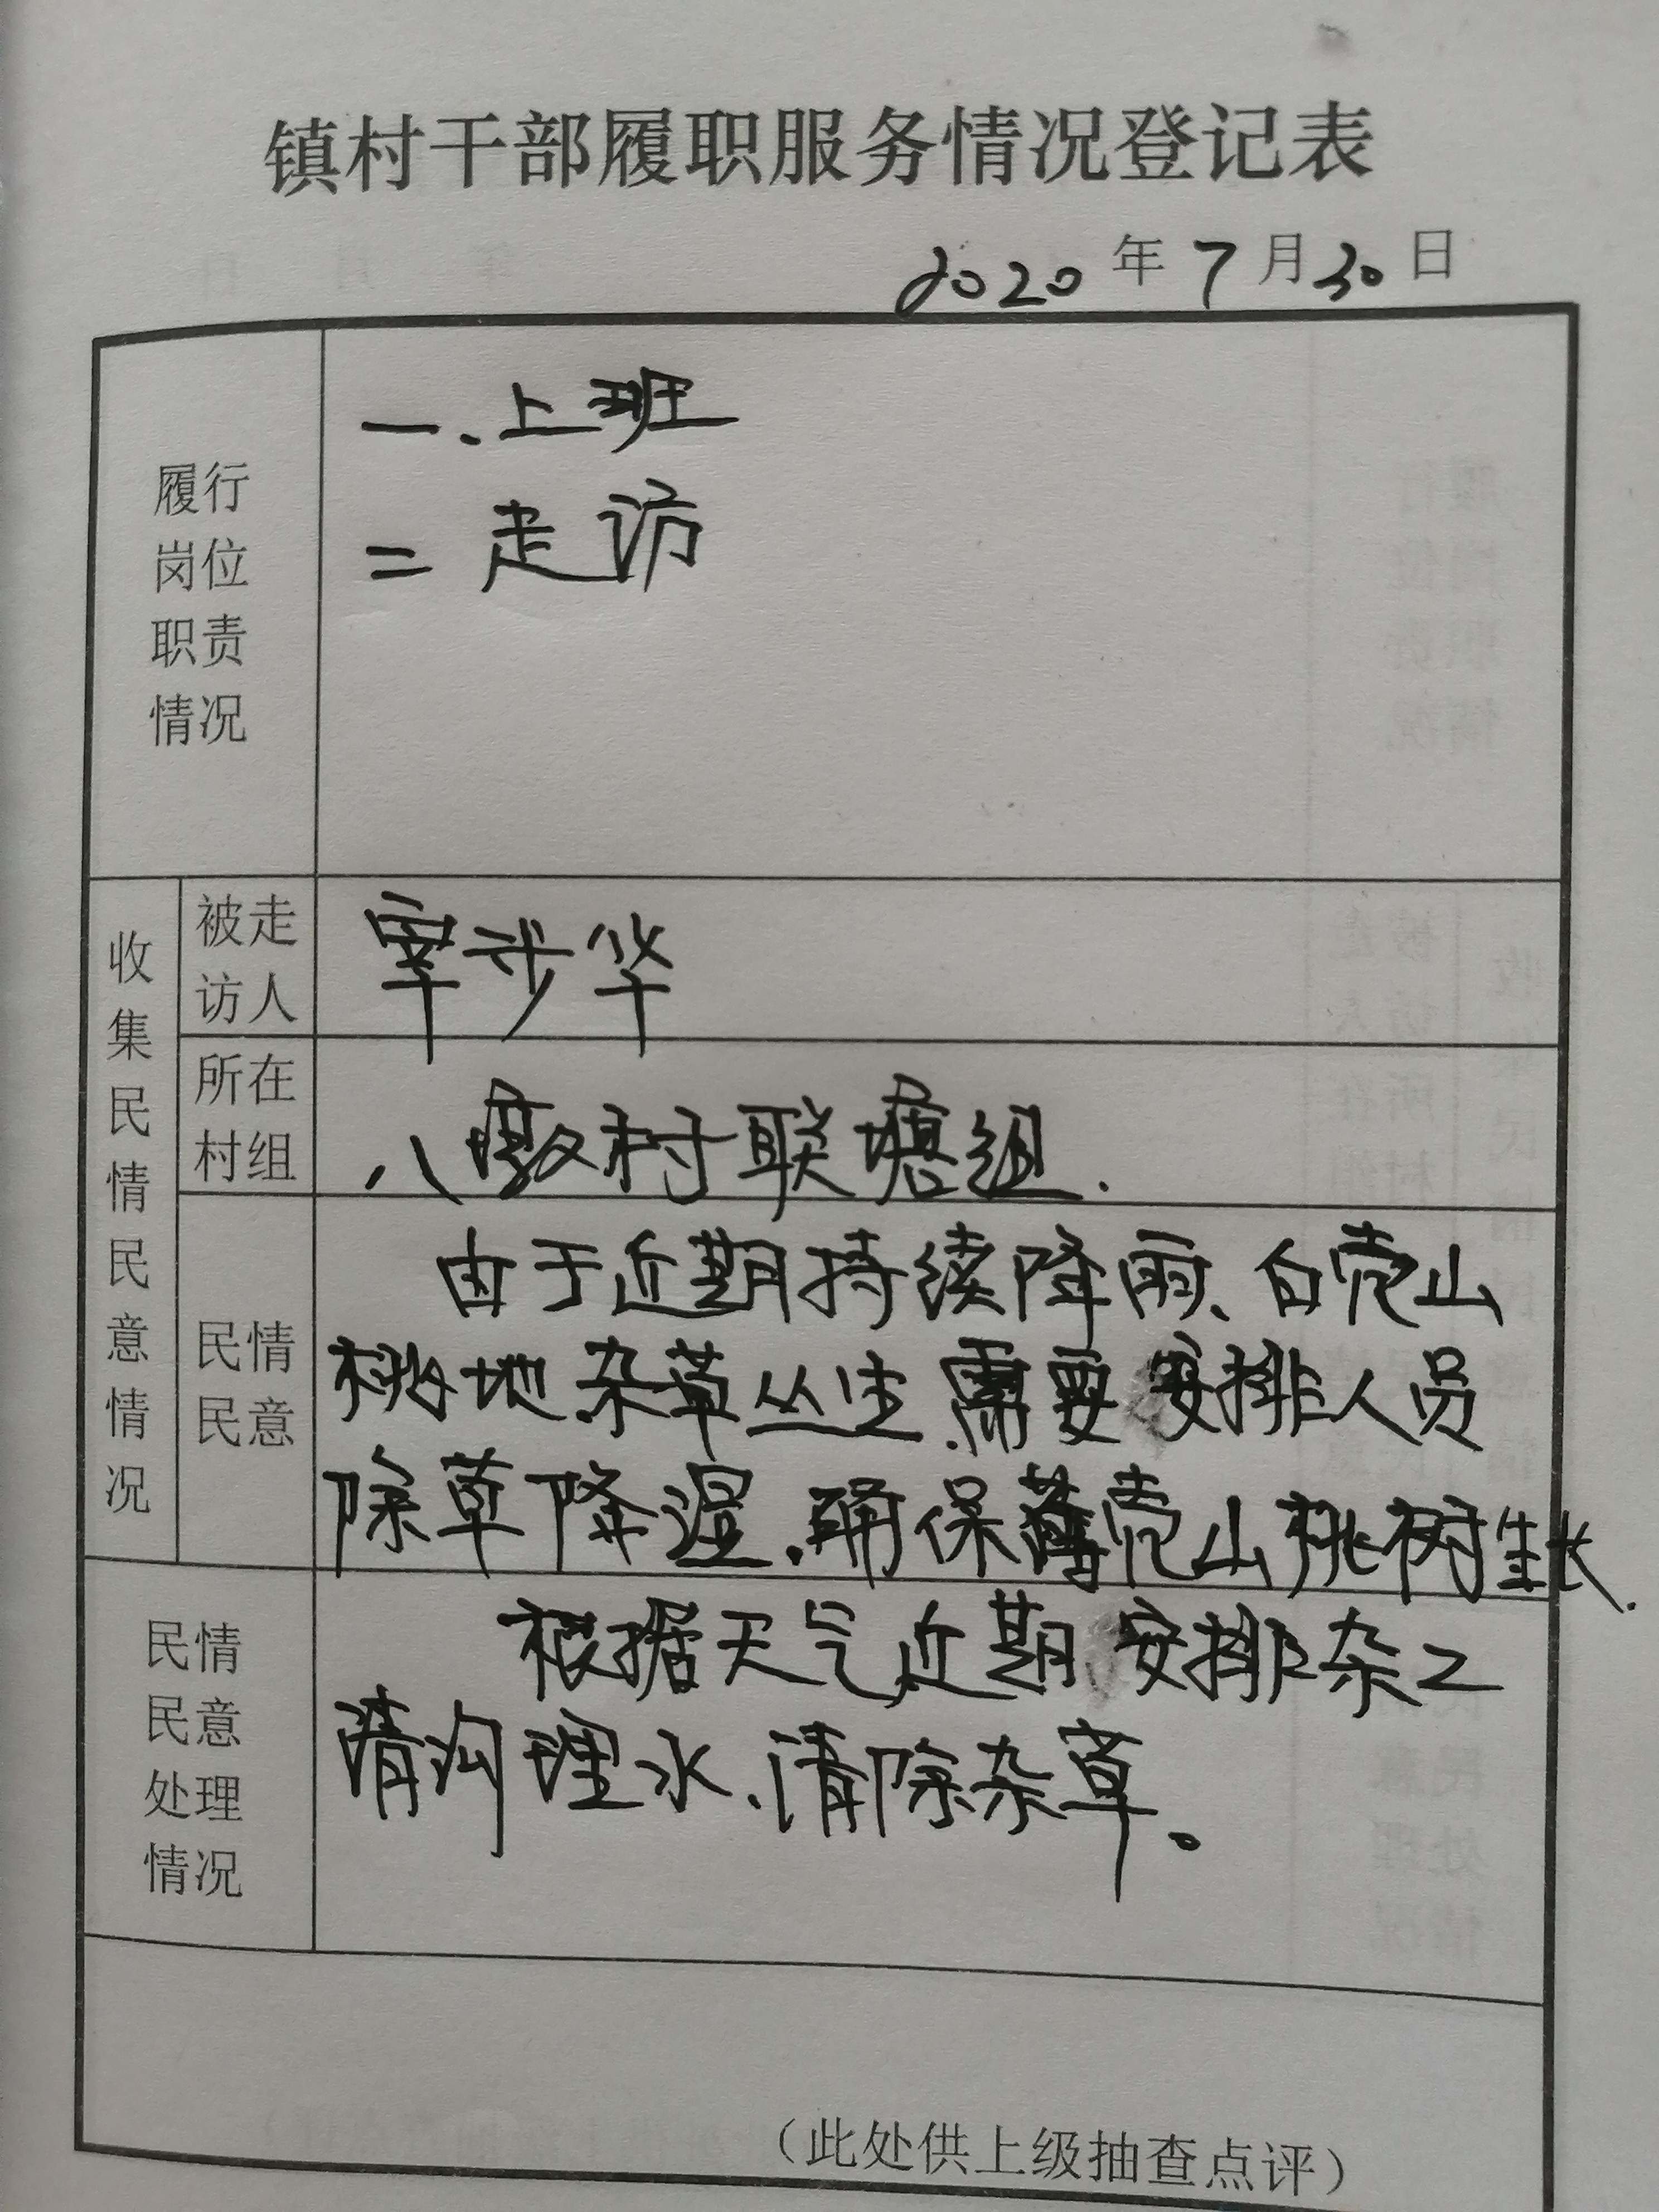 镇村干部履职服务情况登记表
2020年7月30日
履行
岗位
职责
情况
一.上班
二 走访
收集民情民意情况
被走
访人
宰步华
所在
村组
八墩村联塘组.
民情
民意
由于近期持续降雨、白壳山
桃地杂草丛生.需要安排人员
除草降湿.确保薄壳山桃树生长.
民情
民意
处理
情况
根据天气近期安排杂工
清沟理水、清除杂草。
（此处供上级抽查点评）